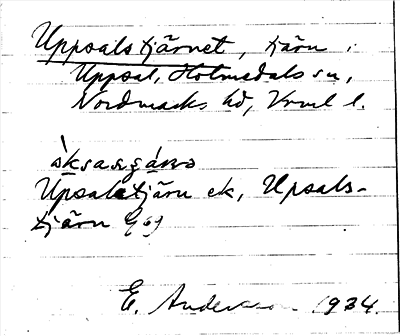 Uppsalstjärnet, tjärn i
Uppsal, Holmedals sn,
Nordmarks hd, Vrml l.
Upsalstjärn ek, Upsals-
tjärn Gsf
E. Anderson 1934